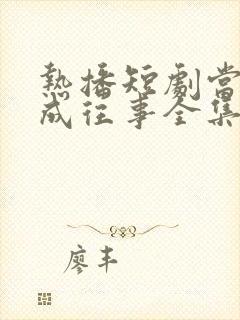 熱播短劇當
成往事全集
廖丰